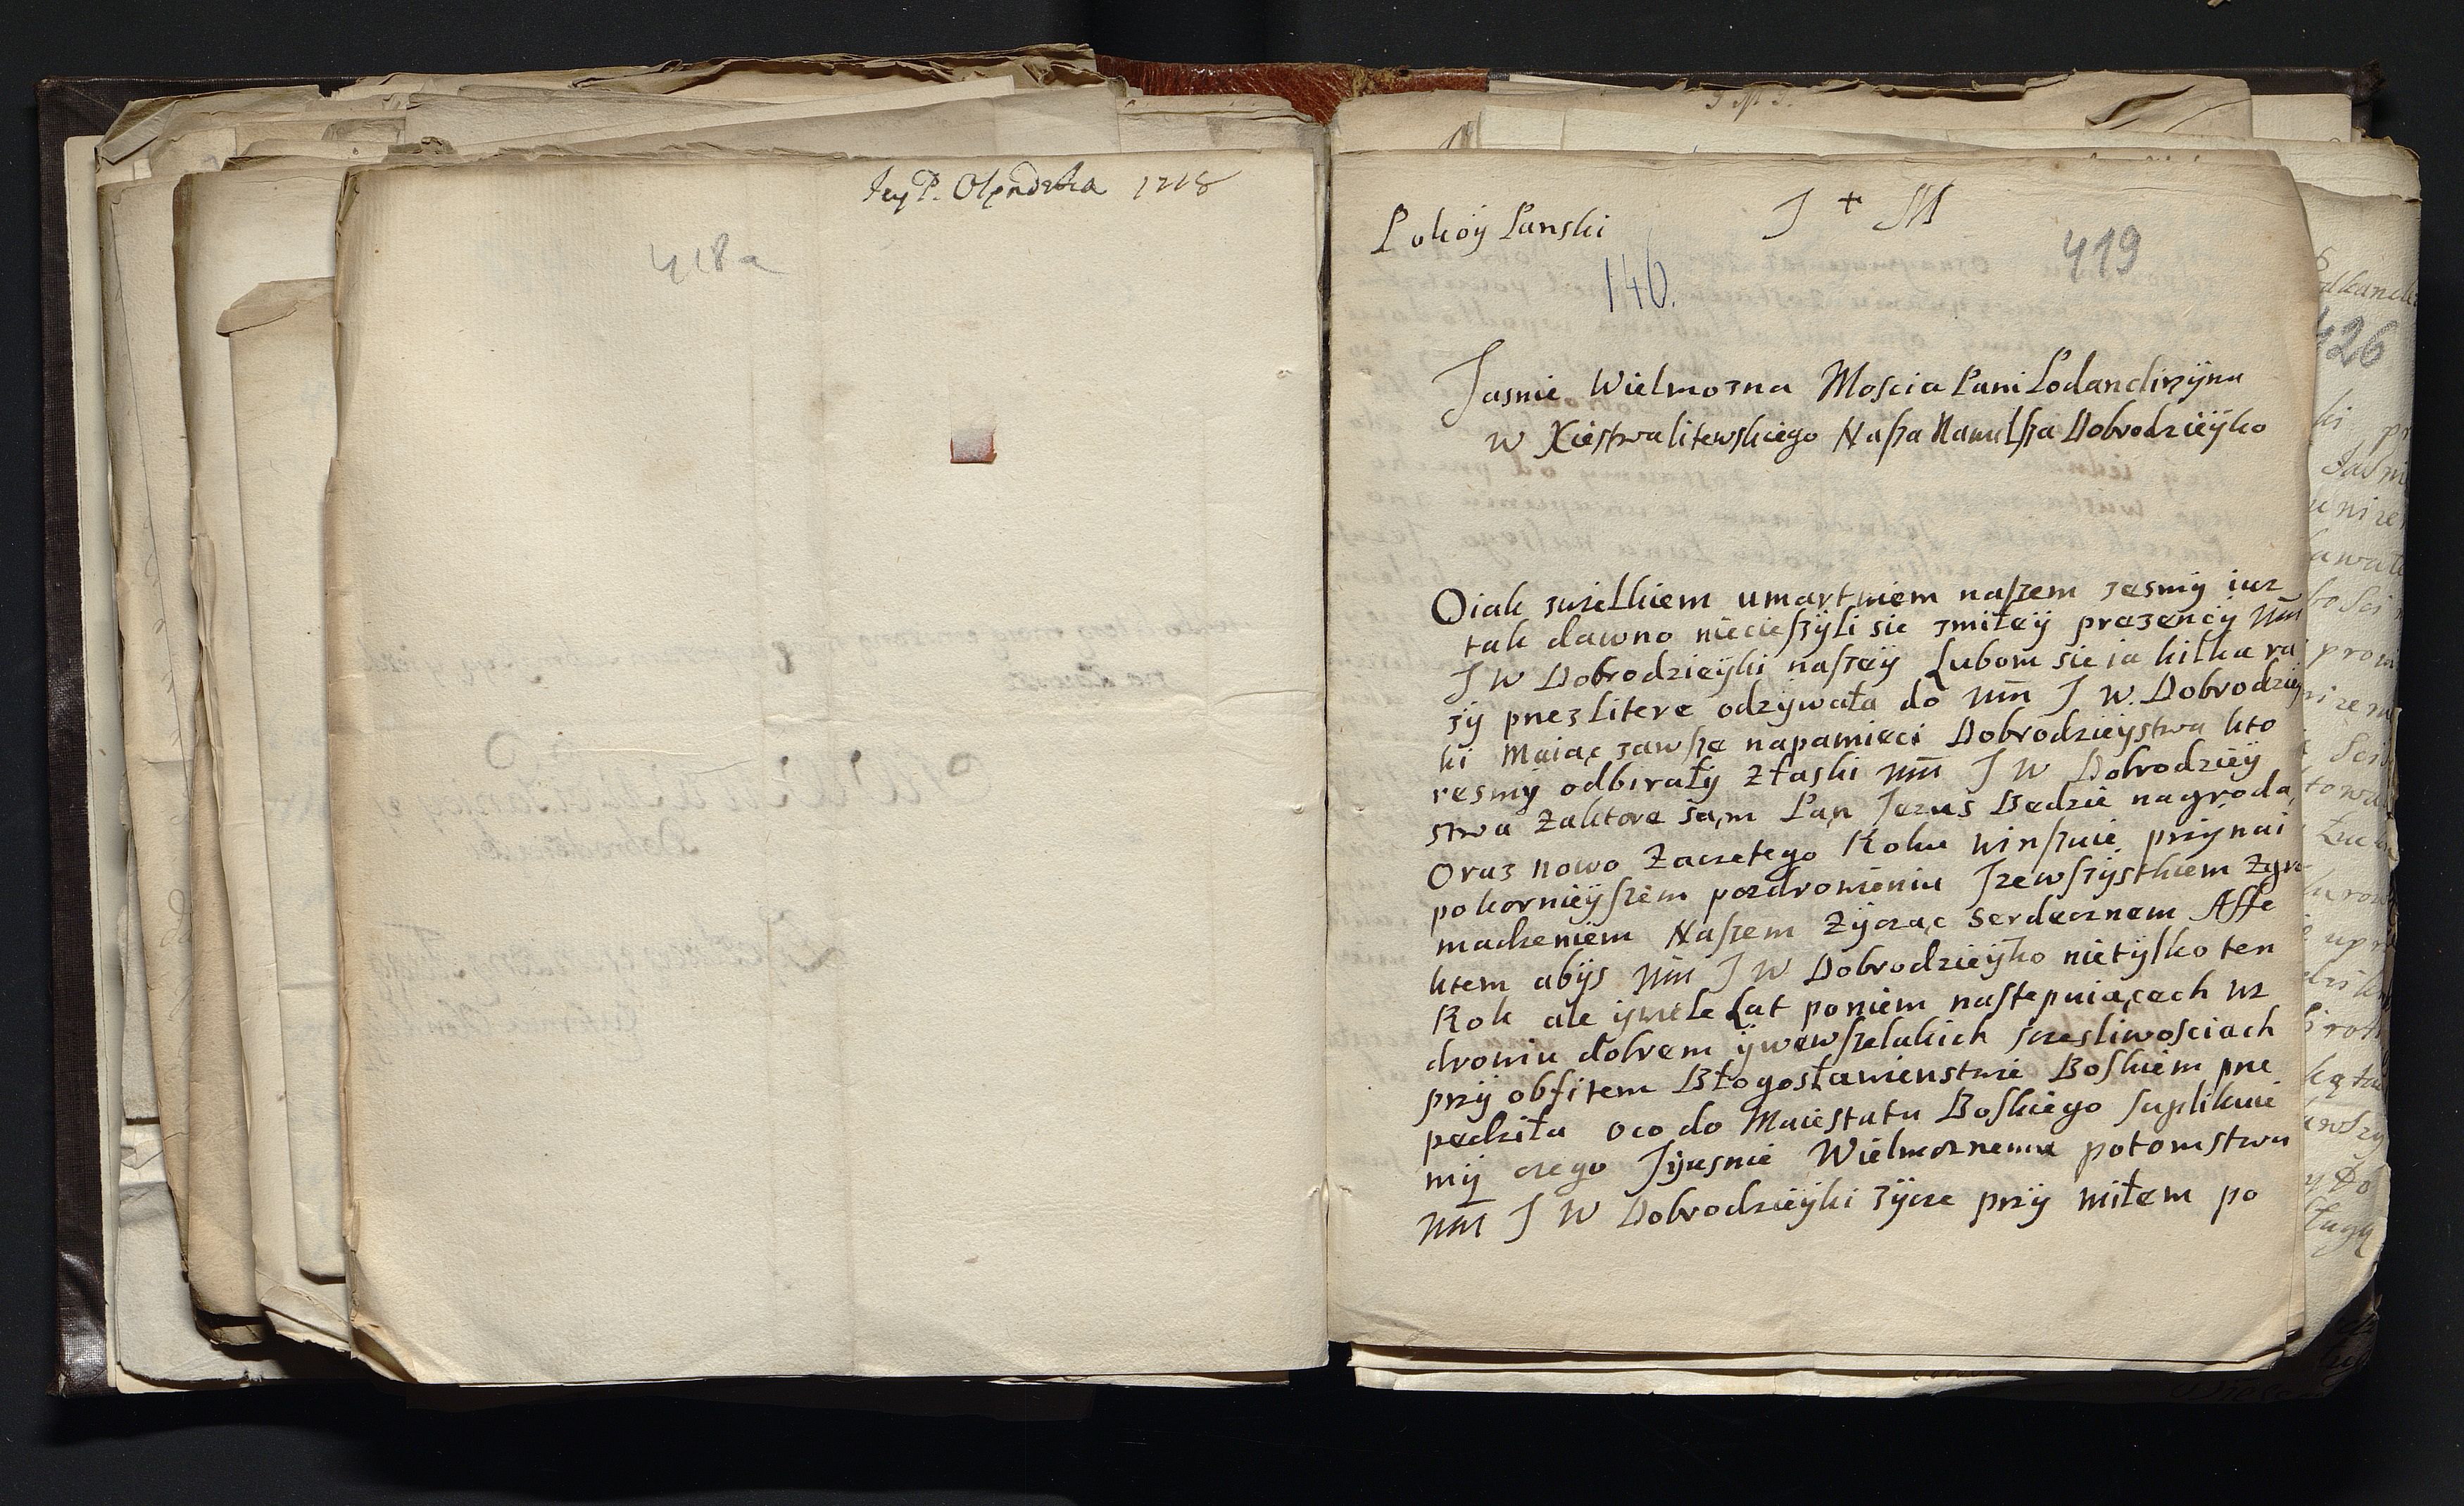 Jey P. Olędzka 1718
418a
Pokoÿ Panski
J + M
419
146.
Jasnie Wielmozna Moscia Pani Podanclirzÿna
W Xiestwa litewskiego Naſza Namilſza Dobrodzieÿko
O iak zwielkiem umartwiem naſzem zesmÿ iuz
tak dawno niecieſzÿli sie zmiłeÿ prezencÿ WM
J W Dobrodzieÿki naſzeÿ Lubom sie ia kilka ra
zÿ przez litere odzÿwała do WM J W. Dobrodzieÿ
ki Maiąc zawſze napamieci Dobrodzieÿstwa kto
resmÿ odbirałÿ Złaski WM J W Dobrodzieÿ
stwa Zaktore sąm Pąn Jezus Bedzie nagrodą,
Oraz nowo Zaczetego Roku winſzuie przÿnai
pokornieÿſzem pozdrowieniu Jzewſzÿstkiem Zgro
madzeniem Naſzem Zÿcząc Serdecznem Affe
ktem abÿs WM J W Dobrodzieÿko nietÿlko ten
Rok ale ÿwiele Lat poniem naſtepuiącech wz
drowiu dobrem ÿwewſzelakich ſczesliwosciach
przÿ obfitem Błogosławienstwie Boſkiem prze
pedziła oco do Maiestatu Boſkiego ſuplikuie
mÿ czego Jÿasnie Wielmoznemu potomstwu
WM J W Dobrodzieÿki zÿcze przÿ miłem po
426